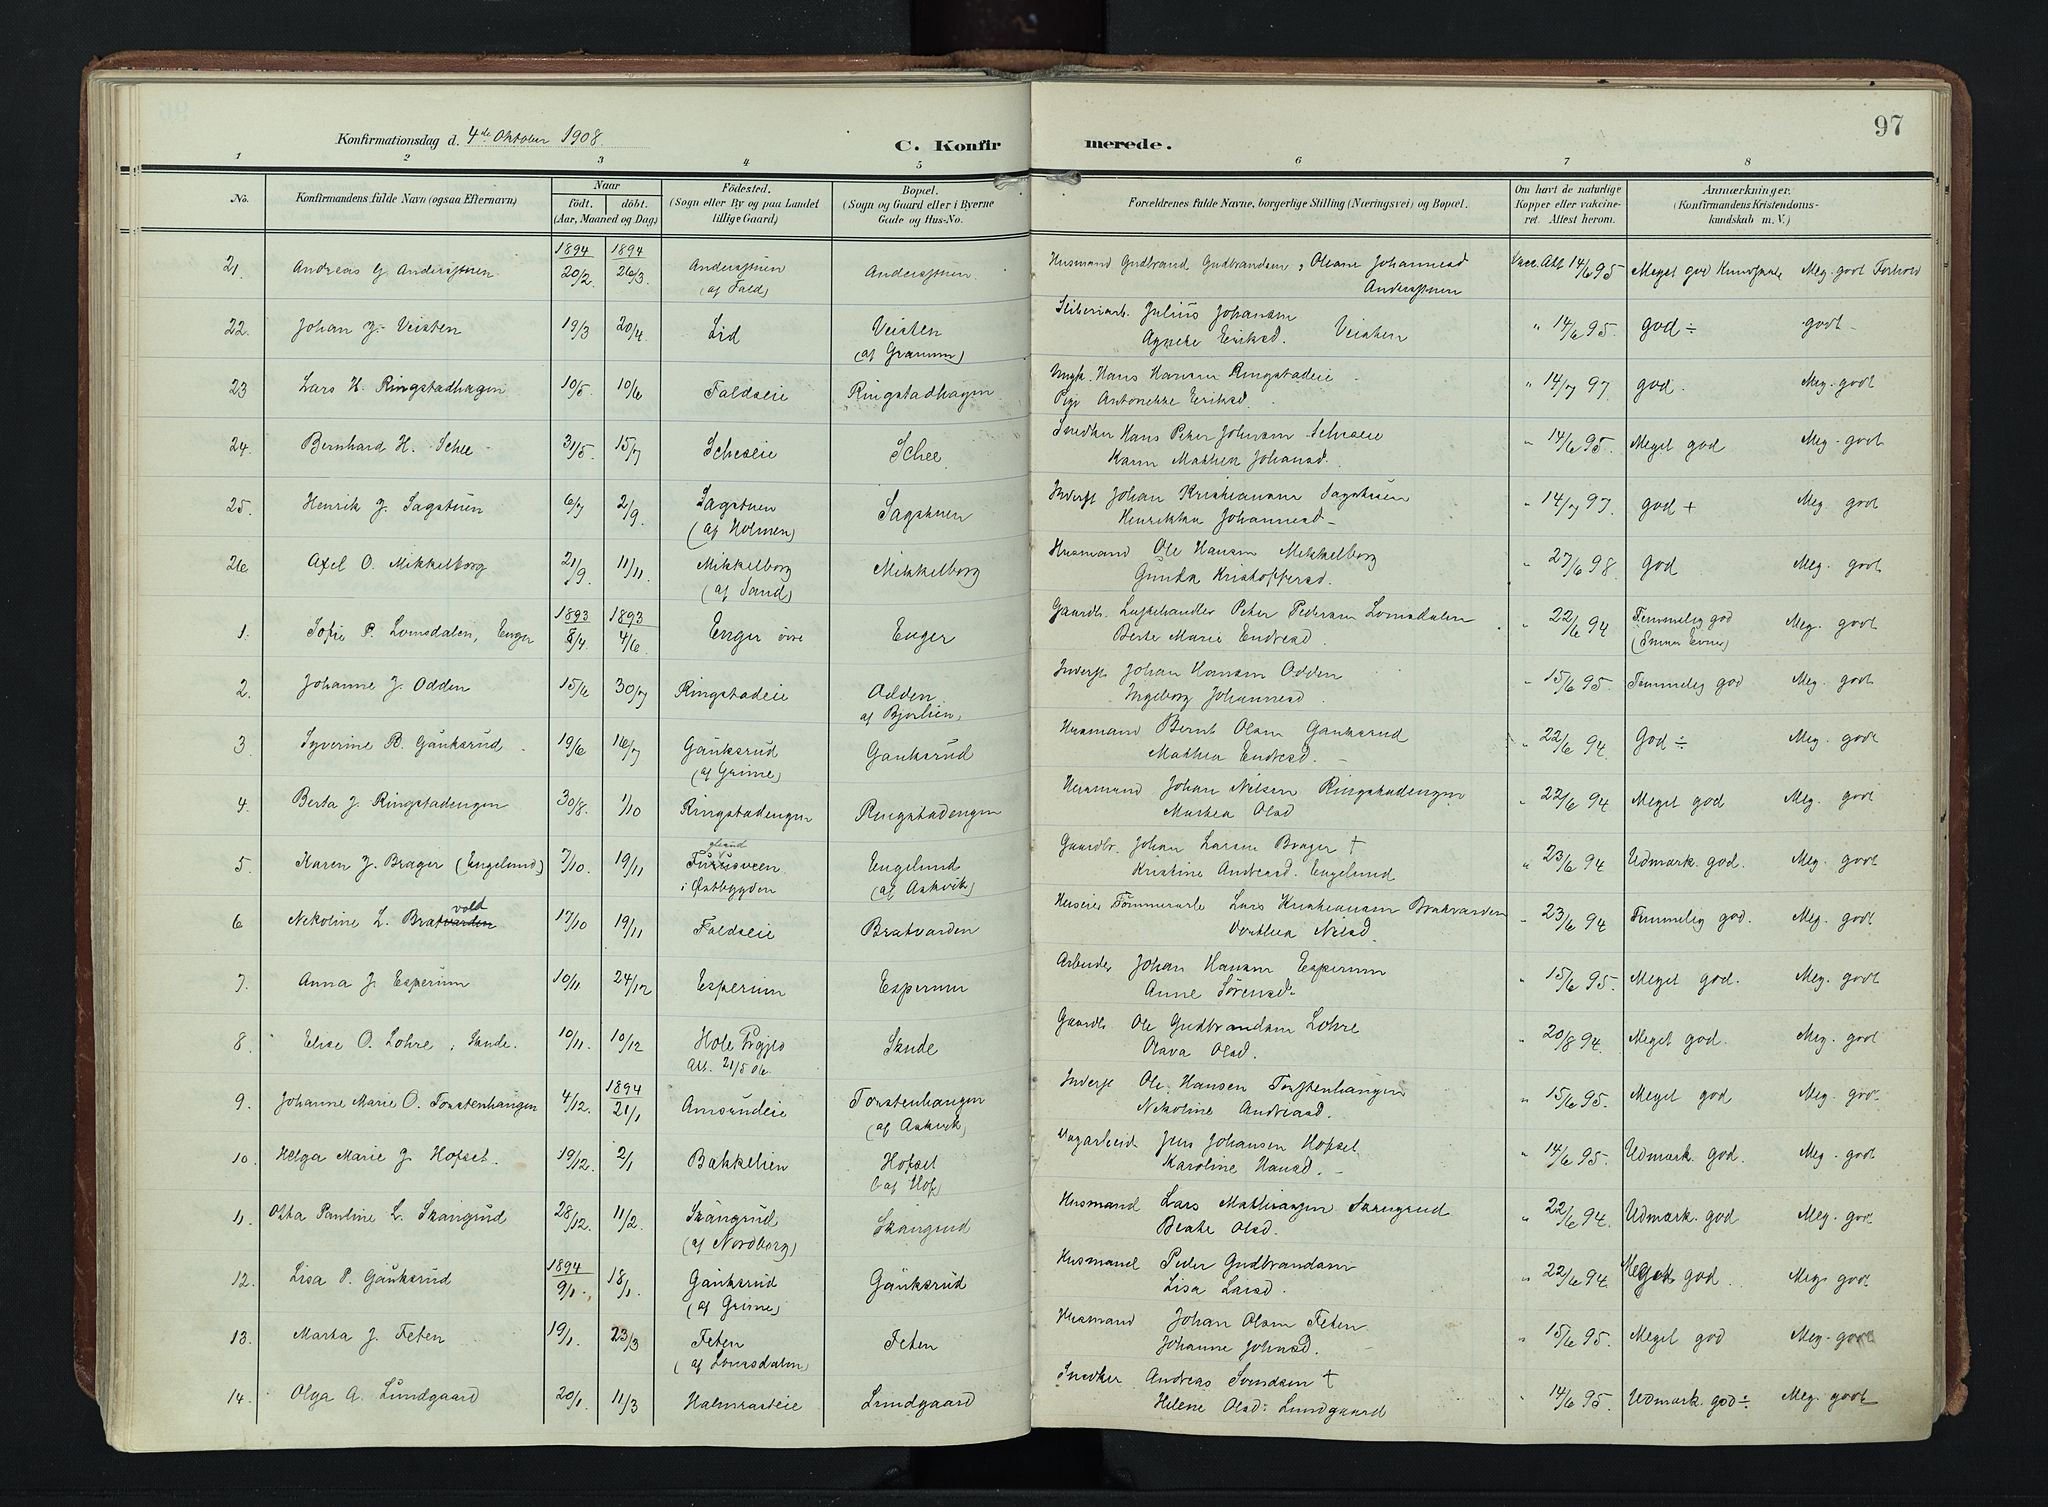 Konfirmationsdag d. 4de Oktober 1908.
C. Konfirmerede.
97
1 2 3 4 5 6 7 8
No. Konfirmandens fulde Navn (ogsaa Efternavn) Naar født. døbt. (Aar, Maaned og Dag) Fødested. (Sogn eller By og paa Landet tillige Gaard) Bopæl. (Sogn og Gaard eller i Byerne Gade og Hus-No. Forældrenes fulde Navne, borgerlige Stilling (Næringsvei) og Bopæl. Om havt de naturlige Kopper eller vakcineret. Attest herom. Anmærkninger. (Konfirmandens Kristendomskundskab m. V.)
21. Andreas G. Andersstuen 1894 20/2. 1894 26/3. Andersstuen (af Fald) Andersstuen Husmand Gudbrand Gudbrandsen, Oleane Johannesd Andersstuen Vacc. Att 14/6 95 Meget god Kundskab Meg. godt Forhold
22. Johan J. Veisten 19/3 20/4 Lid Veisten (af Granum) Sliberiarb. Julius Johansen Agnethe Eriksd. Veisten " 14/6 95. god ÷ godt
23 Lars H. Ringstadhagen 10/5. 10/6 Faldseie Ringstadhagen Ungk. Hans Hansen Ringstadeie Pige Antonette Eriksd. " 14/7 97. god. Meg. godt
24. Bernhard H. Schee 31/5. 15/7 Scheseie Schee Snedker Hans Peter Johansen Scheseie Karen Mathea Johansd. " 14/6 95. Meget god Meg. godt
25. Henrik J. Sagstuen 6/7 2/9. Sagstuen (af Holmen) Sagstuen Inderst Johan Kristiansen Sagstuen Henrikka Johannesd " 14/7 97. god + Meg. godt
26 Axel O. Mikkelborg 21/9. 11/11. Mikkelborg (af Sand) Mikkelborg Husmand Ole Hansen Mikkelborg Gunda Kristoffersd. " 27/6 98. god Meg. godt
1. Sofie P. Lomsdalen, Enger 1893 8/4 1893 4/6 Enger øvre Enger Gaardb. Peter Pedersen Lomsdalen Berte Marie Endresd. " 22/6 94 Temmelig god (Smaa Evner) Meg. godt
2. Johanne J. Odden 15/6 30/7 Ringstadeie Odden af Bjørlien Inderst Johan Hansen Odden Ingeborg Johannesd. " 15/6 95. Temmelig god Meg. godt
3. Syverine B. Gauksrud 19/6 16/7 Gauksrud (af Grime) Gauksrud Husmand Bernt Olsen Gauksrud Mathea Endresd. " 22/6 94. God ÷ Meg. godt
4. Berta J. Ringstadengen 30/8. 1/10 Ringstadengen Ringstadengen Husmand Johan Nilsen Ringstadengen Marthea Olsd " 22/6 94 Meget god Meg. godt
5. Karen J. Brager (Engelund) 7/10. 19/11 Furusveen i Østbygden Engelund (af Askvik) Gaardbr. Johan Larsen Brager † Kristine Andreasd. Engelund " 23/6 94 Udmærk. god. Meg. godt
6 Nekoline L. Bratvarden vold 17/10 19/11 Faldseie Bratvarden Huseier Tømmerarb. Lars Kristiansen Bratvarden Dorthea Nilsd. " 23/6 94 Temmelig god. Meg. godt
7. Anna J. Esperum 10/11 24/12 Esperum Esperum Arbeider Johan Hansen Esperum Anne Sørensd. " 15/6 95. Meget god. Meg. godt
8. Elise O. Lohre, Skude. 10/11. 10/12 Hole Prgjld Att. 21/5 06. Skude Gaardb Ole Gudbrandsen Lohre Olava Olsd. " 20/8 94. Meget god. Meg. godt
9. Johanne Marie O. Torstenhaugen 4/12. 1894 21/1 Amsrudeie Torstenhaugen (af Askvik) Inderst Ole Hansen Torstenhaugen Nekoline Andreasd. " 15/6 95. Meget god Meg. godt
10. Helga Marie J. Hofset. 19/12. 2/1 Bakkelien Hofset (af Hof) Jens Johansen Hofset Karoline Hansd. " 14/6 95. Udmærk. god. Meg. godt
11. Pauline L. Skangrud 28/12. 11/2. Skangrud (af Nordborg) Skangrud Husmand Lars Mathiasen Skangrud Beate Olsd. " 22/6 94. Udmærk. god Meg. godt
12. Lisa P. Gauksrud 1894 9/1. 18/1. Gauksrud (af Grime) Gauksrud Husmand Peder Gudbrandsen Lisa Larsd. " 22/6 94. Meget god Meg. godt
13. Marta J. Feten 19/1. 23/3 Feten (af Lomsdalen) Feten Husmand Johan Olsen Feten Johanne Johnsd. " 15/6 95. Meget god Meg. godt
14. Olga A. Lundgaard 20/1. 11/3 Halmrasteie Lundgaard Snedker Andreas † Helene Olsd. Lundgaard " 14/6 95. Udmærk. god ÷ Meg. godt